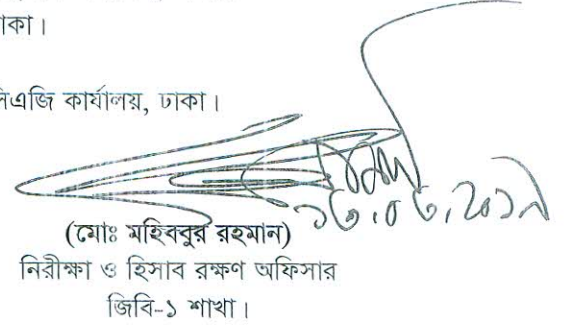 ঢাকা।
সিএজি কার্যালয়, ঢাকা।
(মোঃ মহিববুর রহমান)
নিরীক্ষা ও হিসাব রক্ষণ অফিসার
জিবি-১ শাখা।